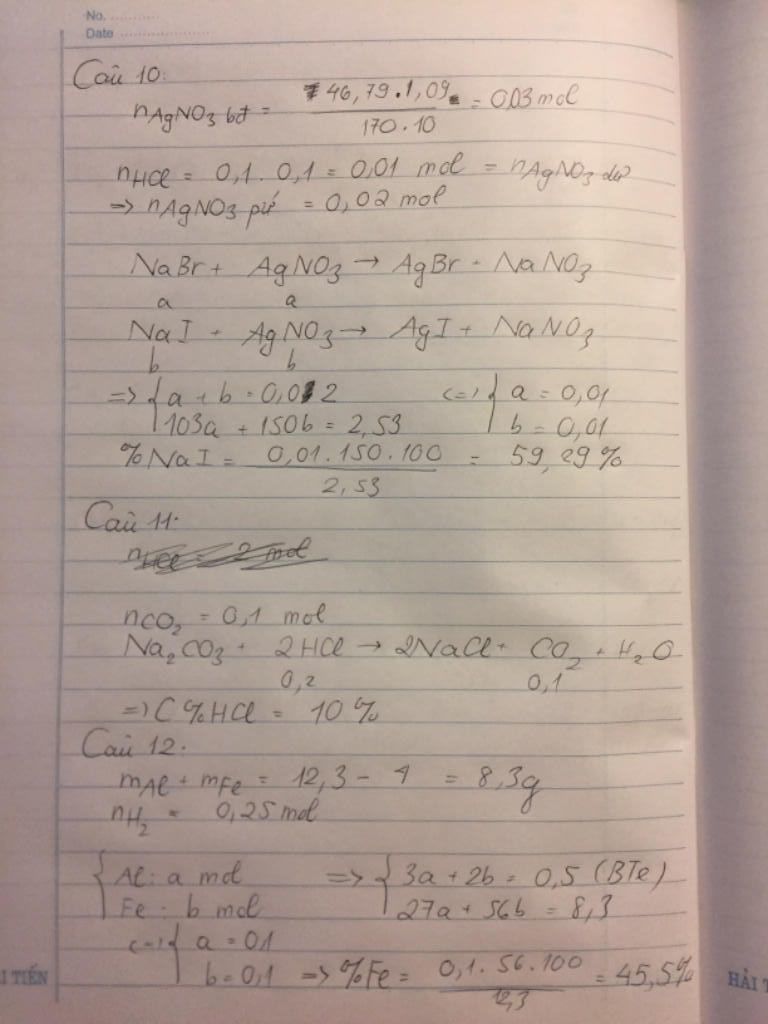 No. ............
Date ......................
Câu 10:
nAgNO3 bđ = 46,79.1,09 / 170.10 = 0,03 mol
nHCl = 0,1. 0,1 = 0,01 mol = nAgNO3 dư
=> nAgNO3 pư = 0,02 mol
NaBr + AgNO3 → AgBr + NaNO3
a a
NaI + AgNO3 → AgI + NaNO3
b b
=> { a + b = 0,02 <=> { a = 0,01
103a + 150b = 2,53 b = 0,01
%NaI = 0,01.150.100 / 2,53 = 59,29%
Câu 11.
nHCl = 2 mol
nCO2 = 0,1 mol
Na2CO3 + 2HCl → 2NaCl + CO2 + H2O
0,2 0,1
=> C%HCl = 10%
Câu 12.
mAl + mFe = 12,3 - 4 = 8,3g
nH2 = 0,25 mol
{ Al: a mol => { 3a + 2b = 0,5 (BTe)
Fe: b mol 27a + 56b = 8,3
<=> { a = 0,1
b = 0,1 => %Fe = 0,1. 56.100 / 12,3 = 45,5%
I TIẾN
HẢI T